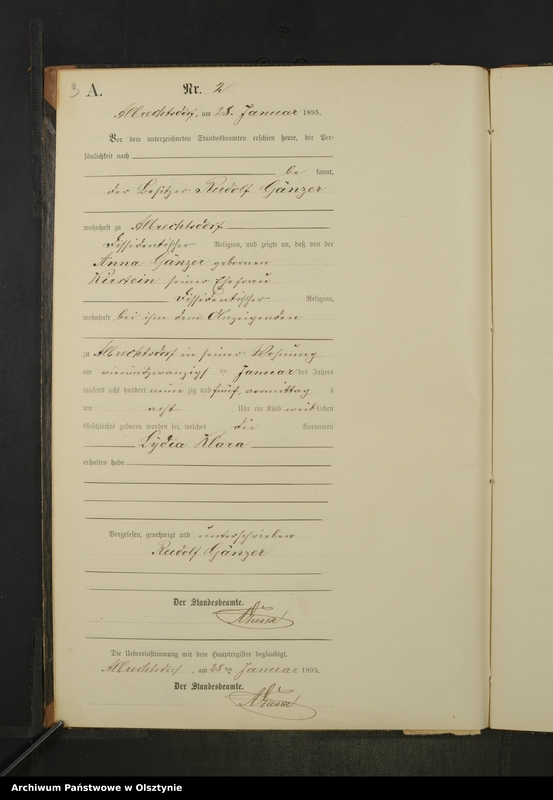 3 A. Nr. 2
Albrechtsdorf, am 28. Januar 1895.
Vor dem unterzeichneten Standesbeamten erschien heute, der Per-
sönlichkeit nach
be kannt,
der Besitzer Rudolf Gänzer
wohnhaft zu Albrechtsdorf
dissidentischer Religion, und zeigte an, daß von der
Anna Gänzer geborenen
Kirstein seiner Ehefrau
dissidentischer Religion,
wohnhaft bei ihm dem Anzeigenden
zu Albrechtsdorf in seiner Wohnung
am vierundzwanzigsten Januar des Jahres
tausend acht hundert neun zig und fünf, vormittag s
um acht Uhr ein Kind weiblichen
Geschlechts geboren worden sei, welches die Vornamen
Lydia Klara
erhalten habe
Vorgelesen, genehmigt und unterschrieben
Rudolf Gänzer
Der Standesbeamte.
Die Uebereinstimmung mit dem Hauptregister beglaubigt.
Albrechtsdorf, am 28ten Januar 1895.
Der Standesbeamte.
Archiwum Państwowe w Olsztynie